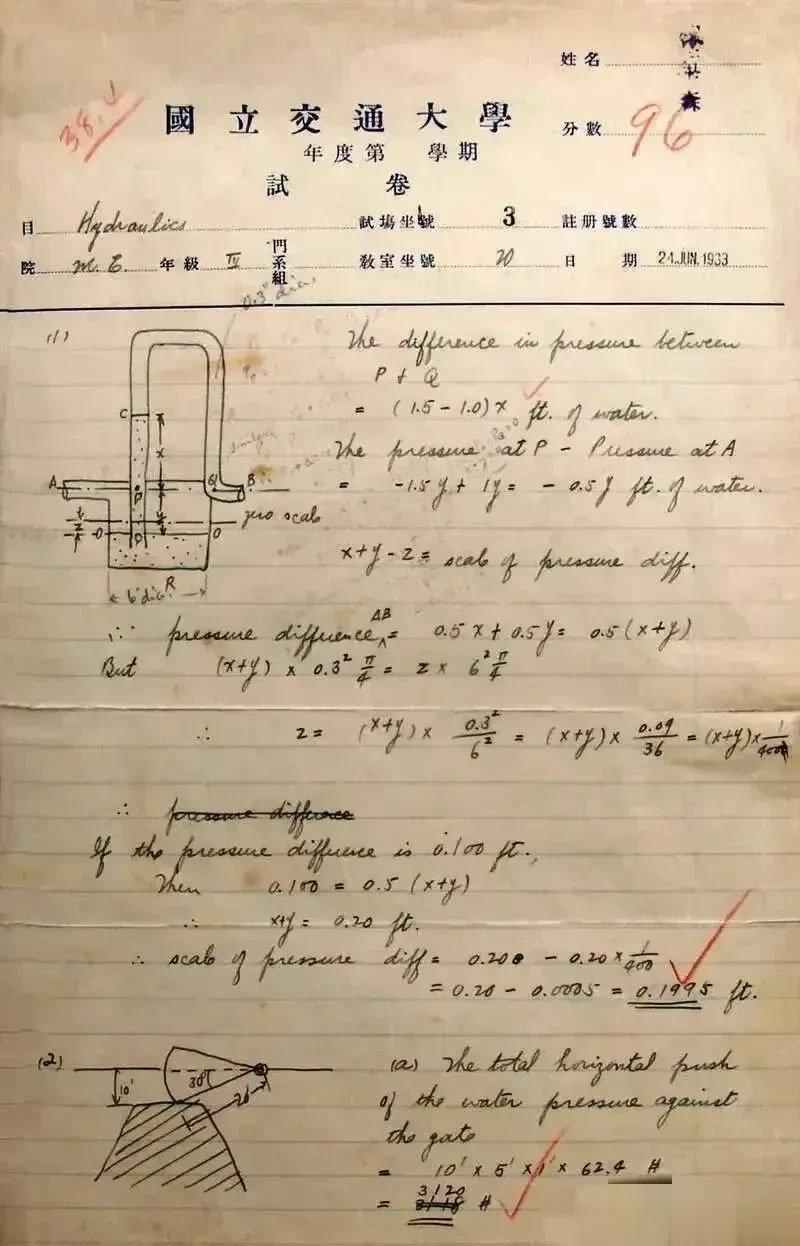 姓名
38.4
國立交通大學
分數 96
年度第 學期
試卷
目 Hydraulics 試場坐號 3 註册號數
院 M.E. 年級 IV 門系組 教室坐號 20 日期 24.JUN.1933
0.3" dia.
(1)
The difference in pressure between
P & Q
= (1.5 - 1.0)x ft. of water.
The pressure at P - Pressure at A
= -1.5y + 1y = -0.5y ft. of water.
C
x
A P Q B
zero scale
z y
O D O
R
6" dia.
x+y-z = scale of pressure diff.
∴ pressure difference AB = 0.5x + 0.5y = 0.5(x+y)
But (x+y) x 0.3² π/4 = z x 6² π/4
∴ z = (x+y) x 0.3²/6² = (x+y) x 0.09/36 = (x+y) x 1/400
∴ pressure difference
If the pressure difference is 0.100 ft.,
Then 0.100 = 0.5 (x+y)
∴ x+y = 0.20 ft.
∴ scale of pressure diff = 0.200 - 0.20 x 1/400
= 0.20 - 0.0005 = 0.1995 ft.
(2)
10'
30°
20'
(a) The total horizontal push
of the water pressure against
the gate
= 10' x 5' x 1' x 62.4 #
= 3120 #